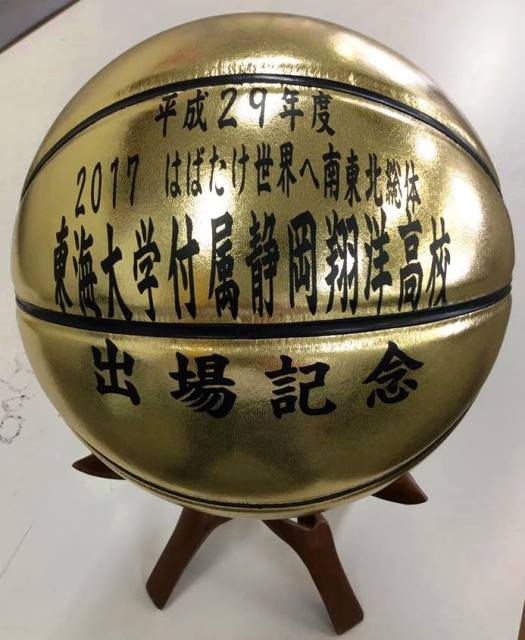 平成29年度
2017 はばたけ世界へ南東北総体
東海大学付属静岡翔洋高校
出場記念